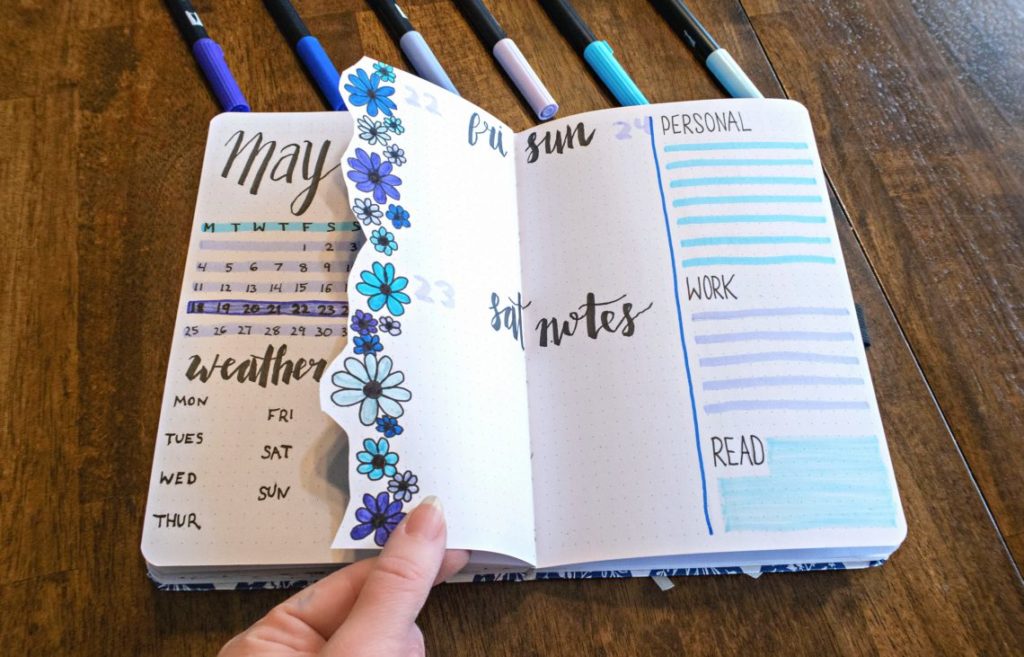 May
M T W T F S S
1 2 3
4 5 6 7 8 9
11 12 13 14 15 16
18 19 20 21 22 23
25 26 27 28 29 30
weather
MON
TUES
WED
THUR
FRI
SAT
SUN
22 fri
23 sat
sun 24
notes
PERSONAL
WORK
READ